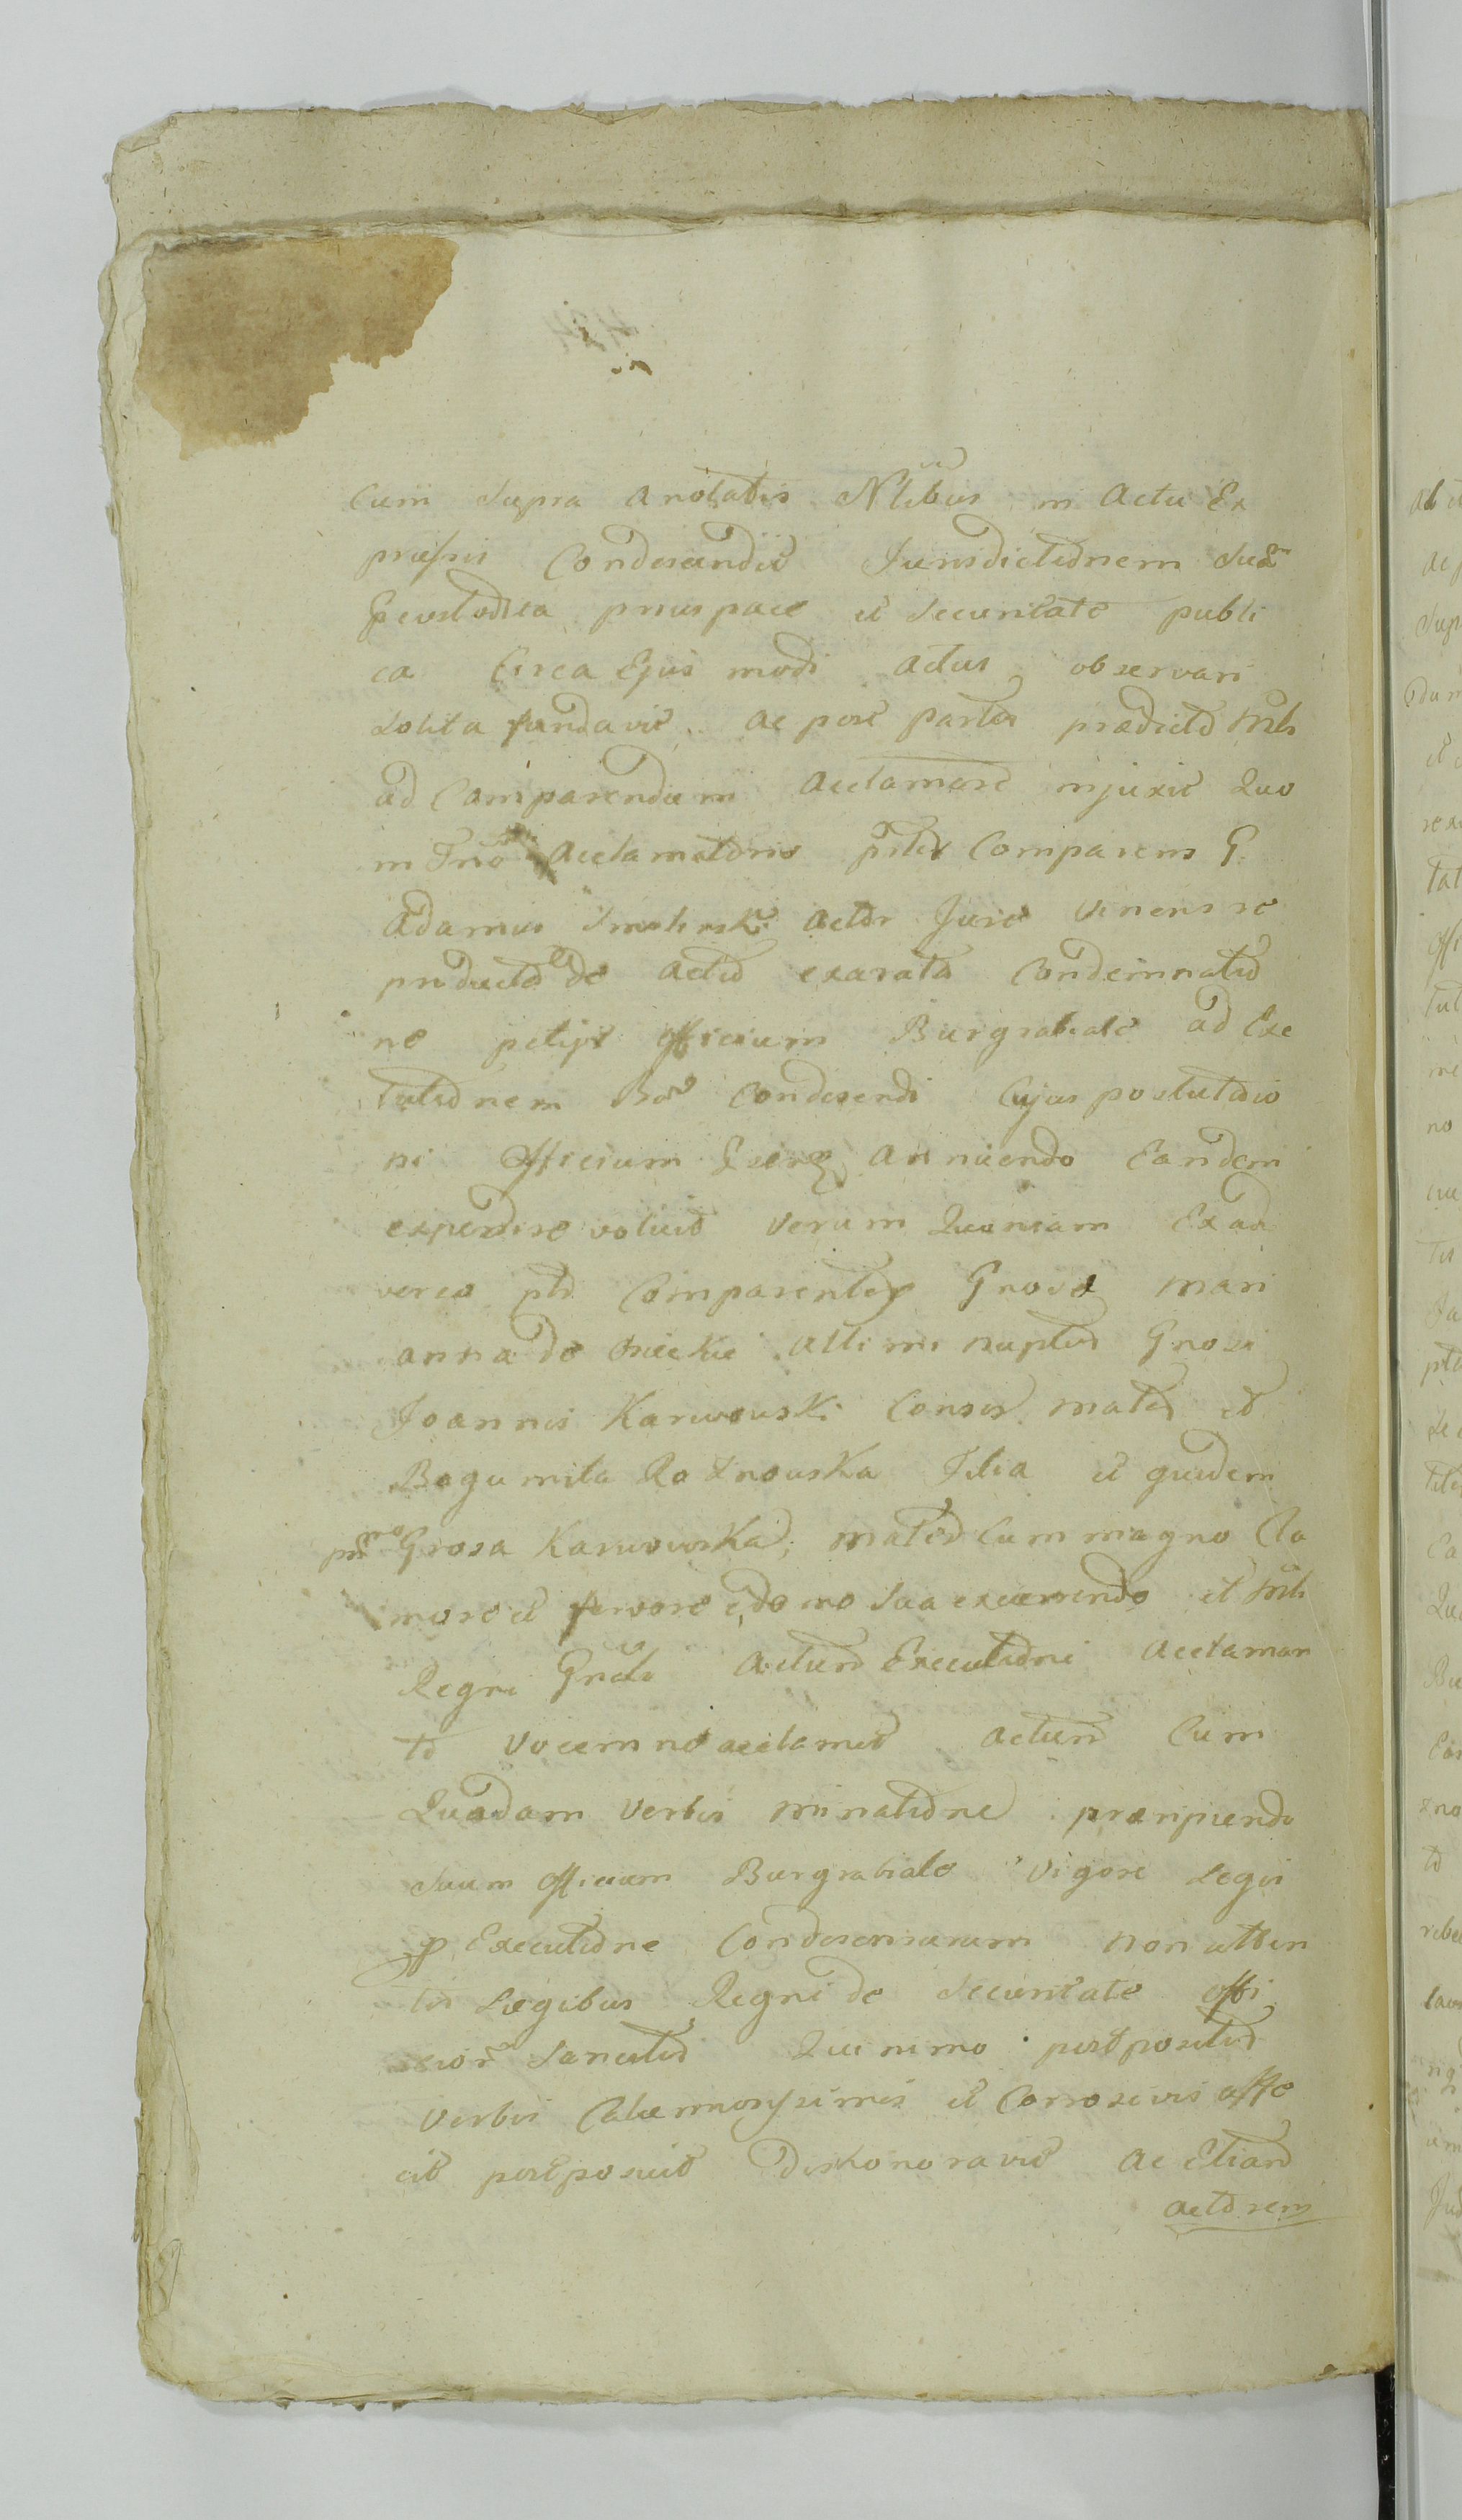 Cum Supra Anotatis Nlibus in Actu Ex
praessis Condescendit Jurisdictionem Suam
Custodita prius pace et Securitate publi
ca Circa Ejus modi actus observari
Solita fundavit. ac post partes praedictas
ad Comparendum acclamare injuxit Quo
in Tno acclamationis Comparens G.
Adamus Smolinski Actor Jure Vinens se
producta de Actis exarata Condemnatio
ne petijt Officium Burgrabiale ad Exe
cutionem Condescendi Cujus postulatio
ni Officium Annuendo Eandem
expendire voluit Verum Quoniam Ex ad
verso Comparentes Gnosa Mari
anna de olim nuptis Gnosi
Joannis Karwowski Consors mater et
Bogumila Roxnouska Filia et quidem
Grosa Karwowska, mater Cum magno Cla
more et fervore e domo Sua excurrendo et
Regni Gnali Actum Executioni acclaman
ti Vocem ne acclamet actum Cum
Quadam Verbis minatione praeripiendo
Suum Officium Burgrabiale Vigore Legis
p Executione Condescensarum non atten
tis Legibus Regni de Securitate Offi
cior Sancitis Quinimo postpositis
Verbis Calumniosissimis et Corrosivis affe
cit postposuit Dishonoravit ac Etiam
actorem